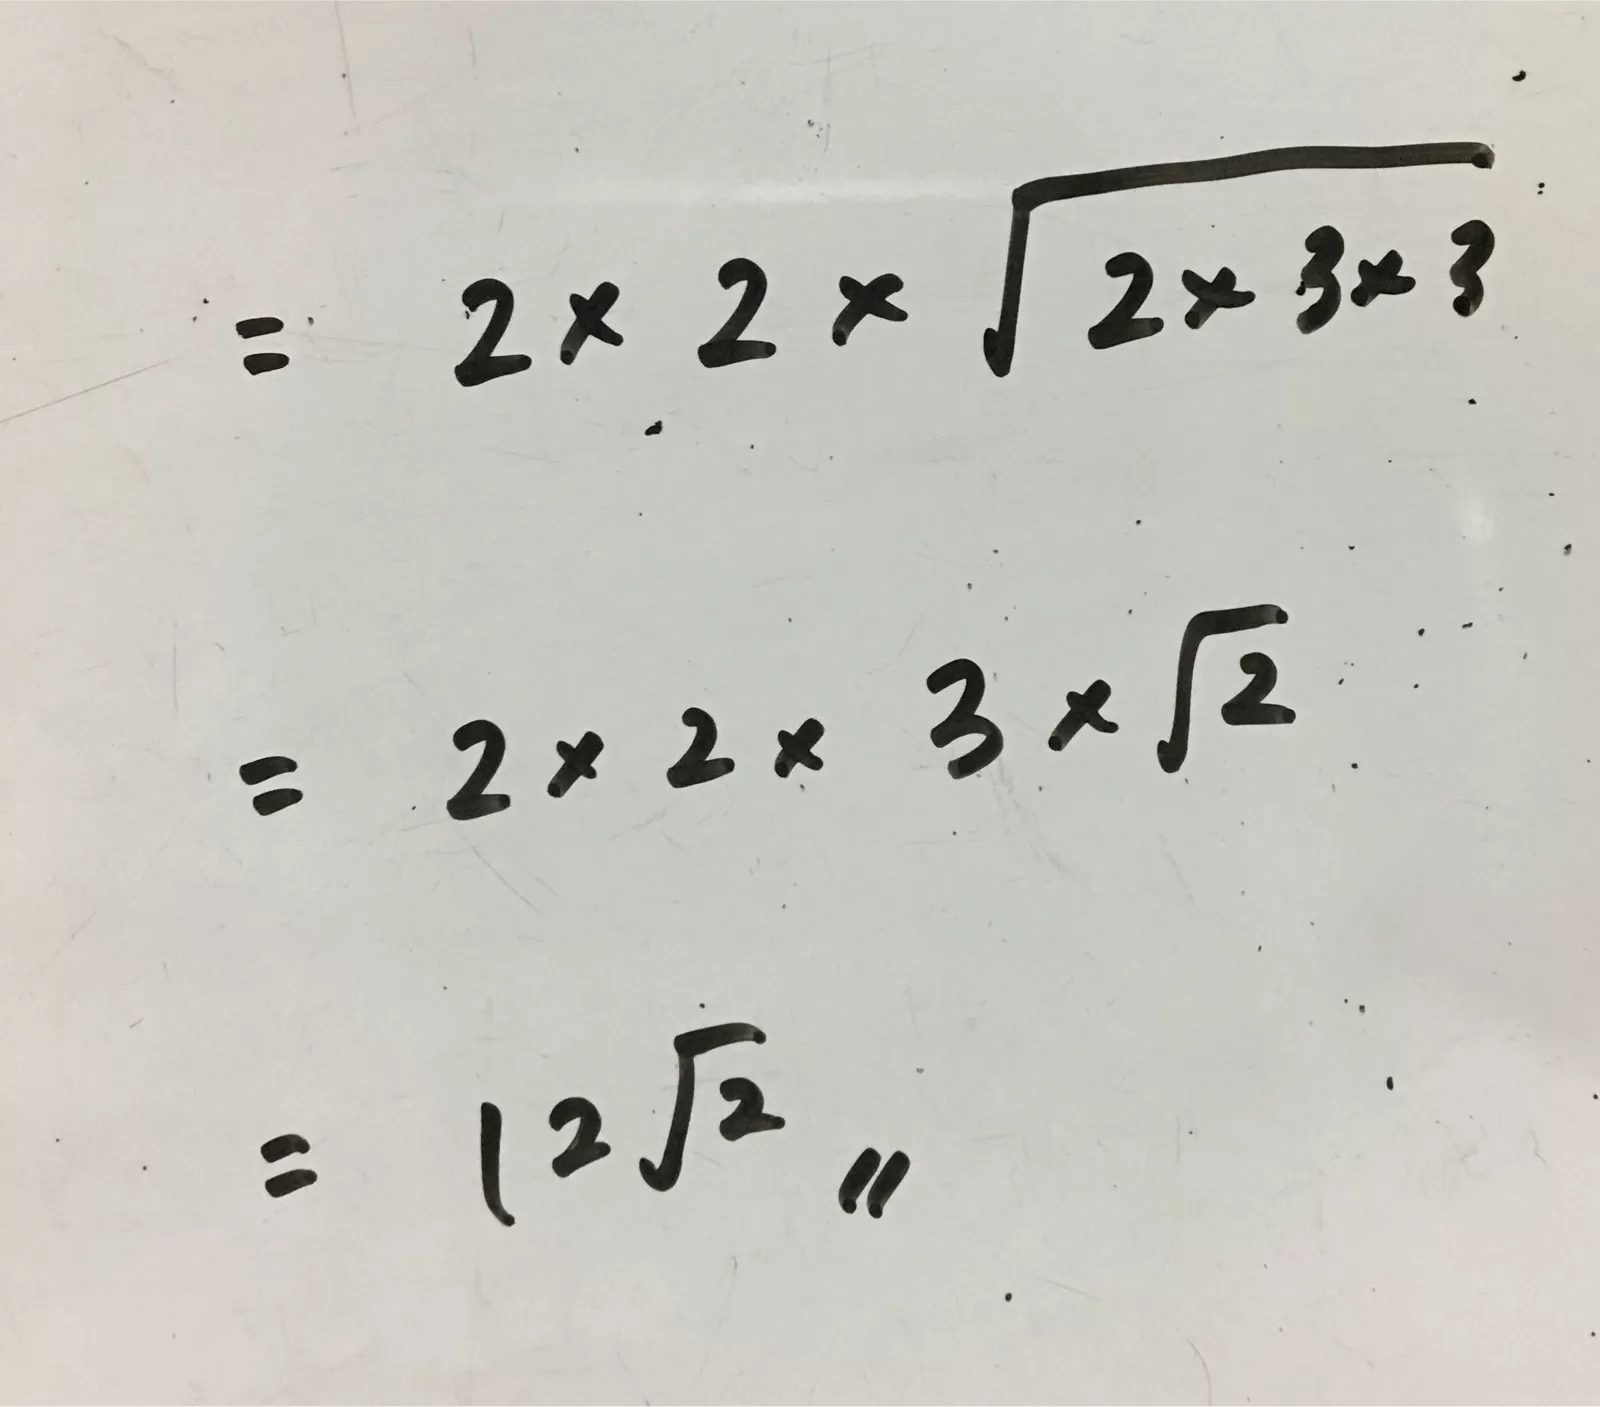 = 2 × 2 × √(2 × 3 × 3)
= 2 × 2 × 3 × √2
= 12√2 〃